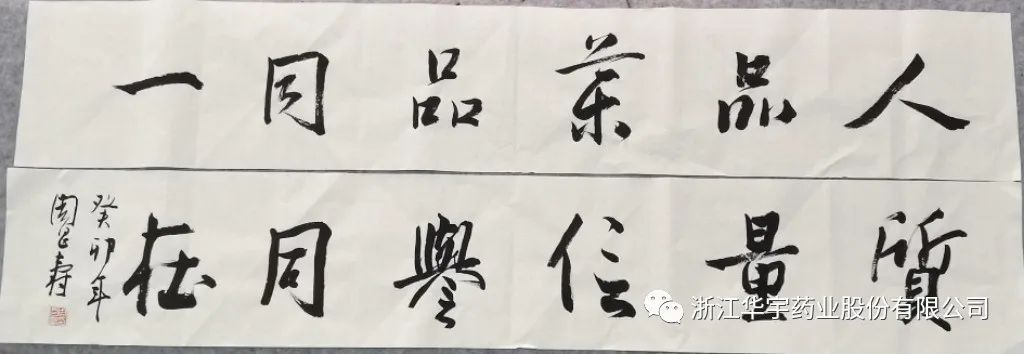 人品藥品同一
質量信譽同在
癸卯年
周
浙江华宇药业股份有限公司